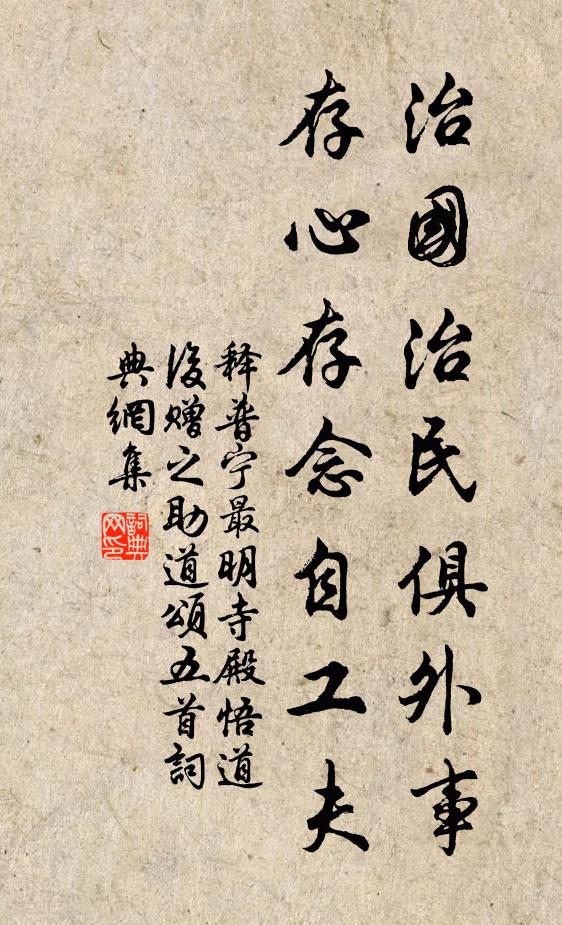 治國治民俱外事
存心存念自工夫
释普宁最明寺殿悟道
後赠之助道頌五首詞
典網集
詞典网印